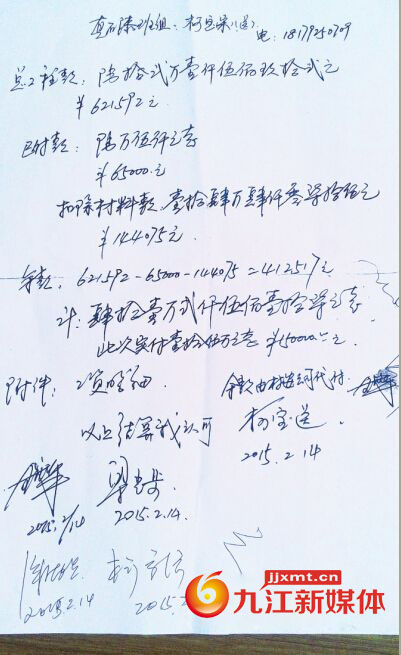 真石漆班组: 柯 电: 18179250709
总工程款: 陆拾贰万壹仟伍佰玖拾贰元
¥621592元
已付款: 陆万伍仟元整
¥65000元
扣除材料款: 壹拾肆万肆仟零柒拾伍元
¥144075元
余款: 621592-65000-144075=412517元
计: 肆拾壹万贰仟伍佰壹拾柒元整
此次实付壹拾伍万元整 ¥150000元
附件: 2页明细 余款由 代付
以上结算我认可 柯宝送
2015.2.14
2015.2.14
2015.2.14
2015.2.14
2015.
jjxmt.cn
九江新媒体